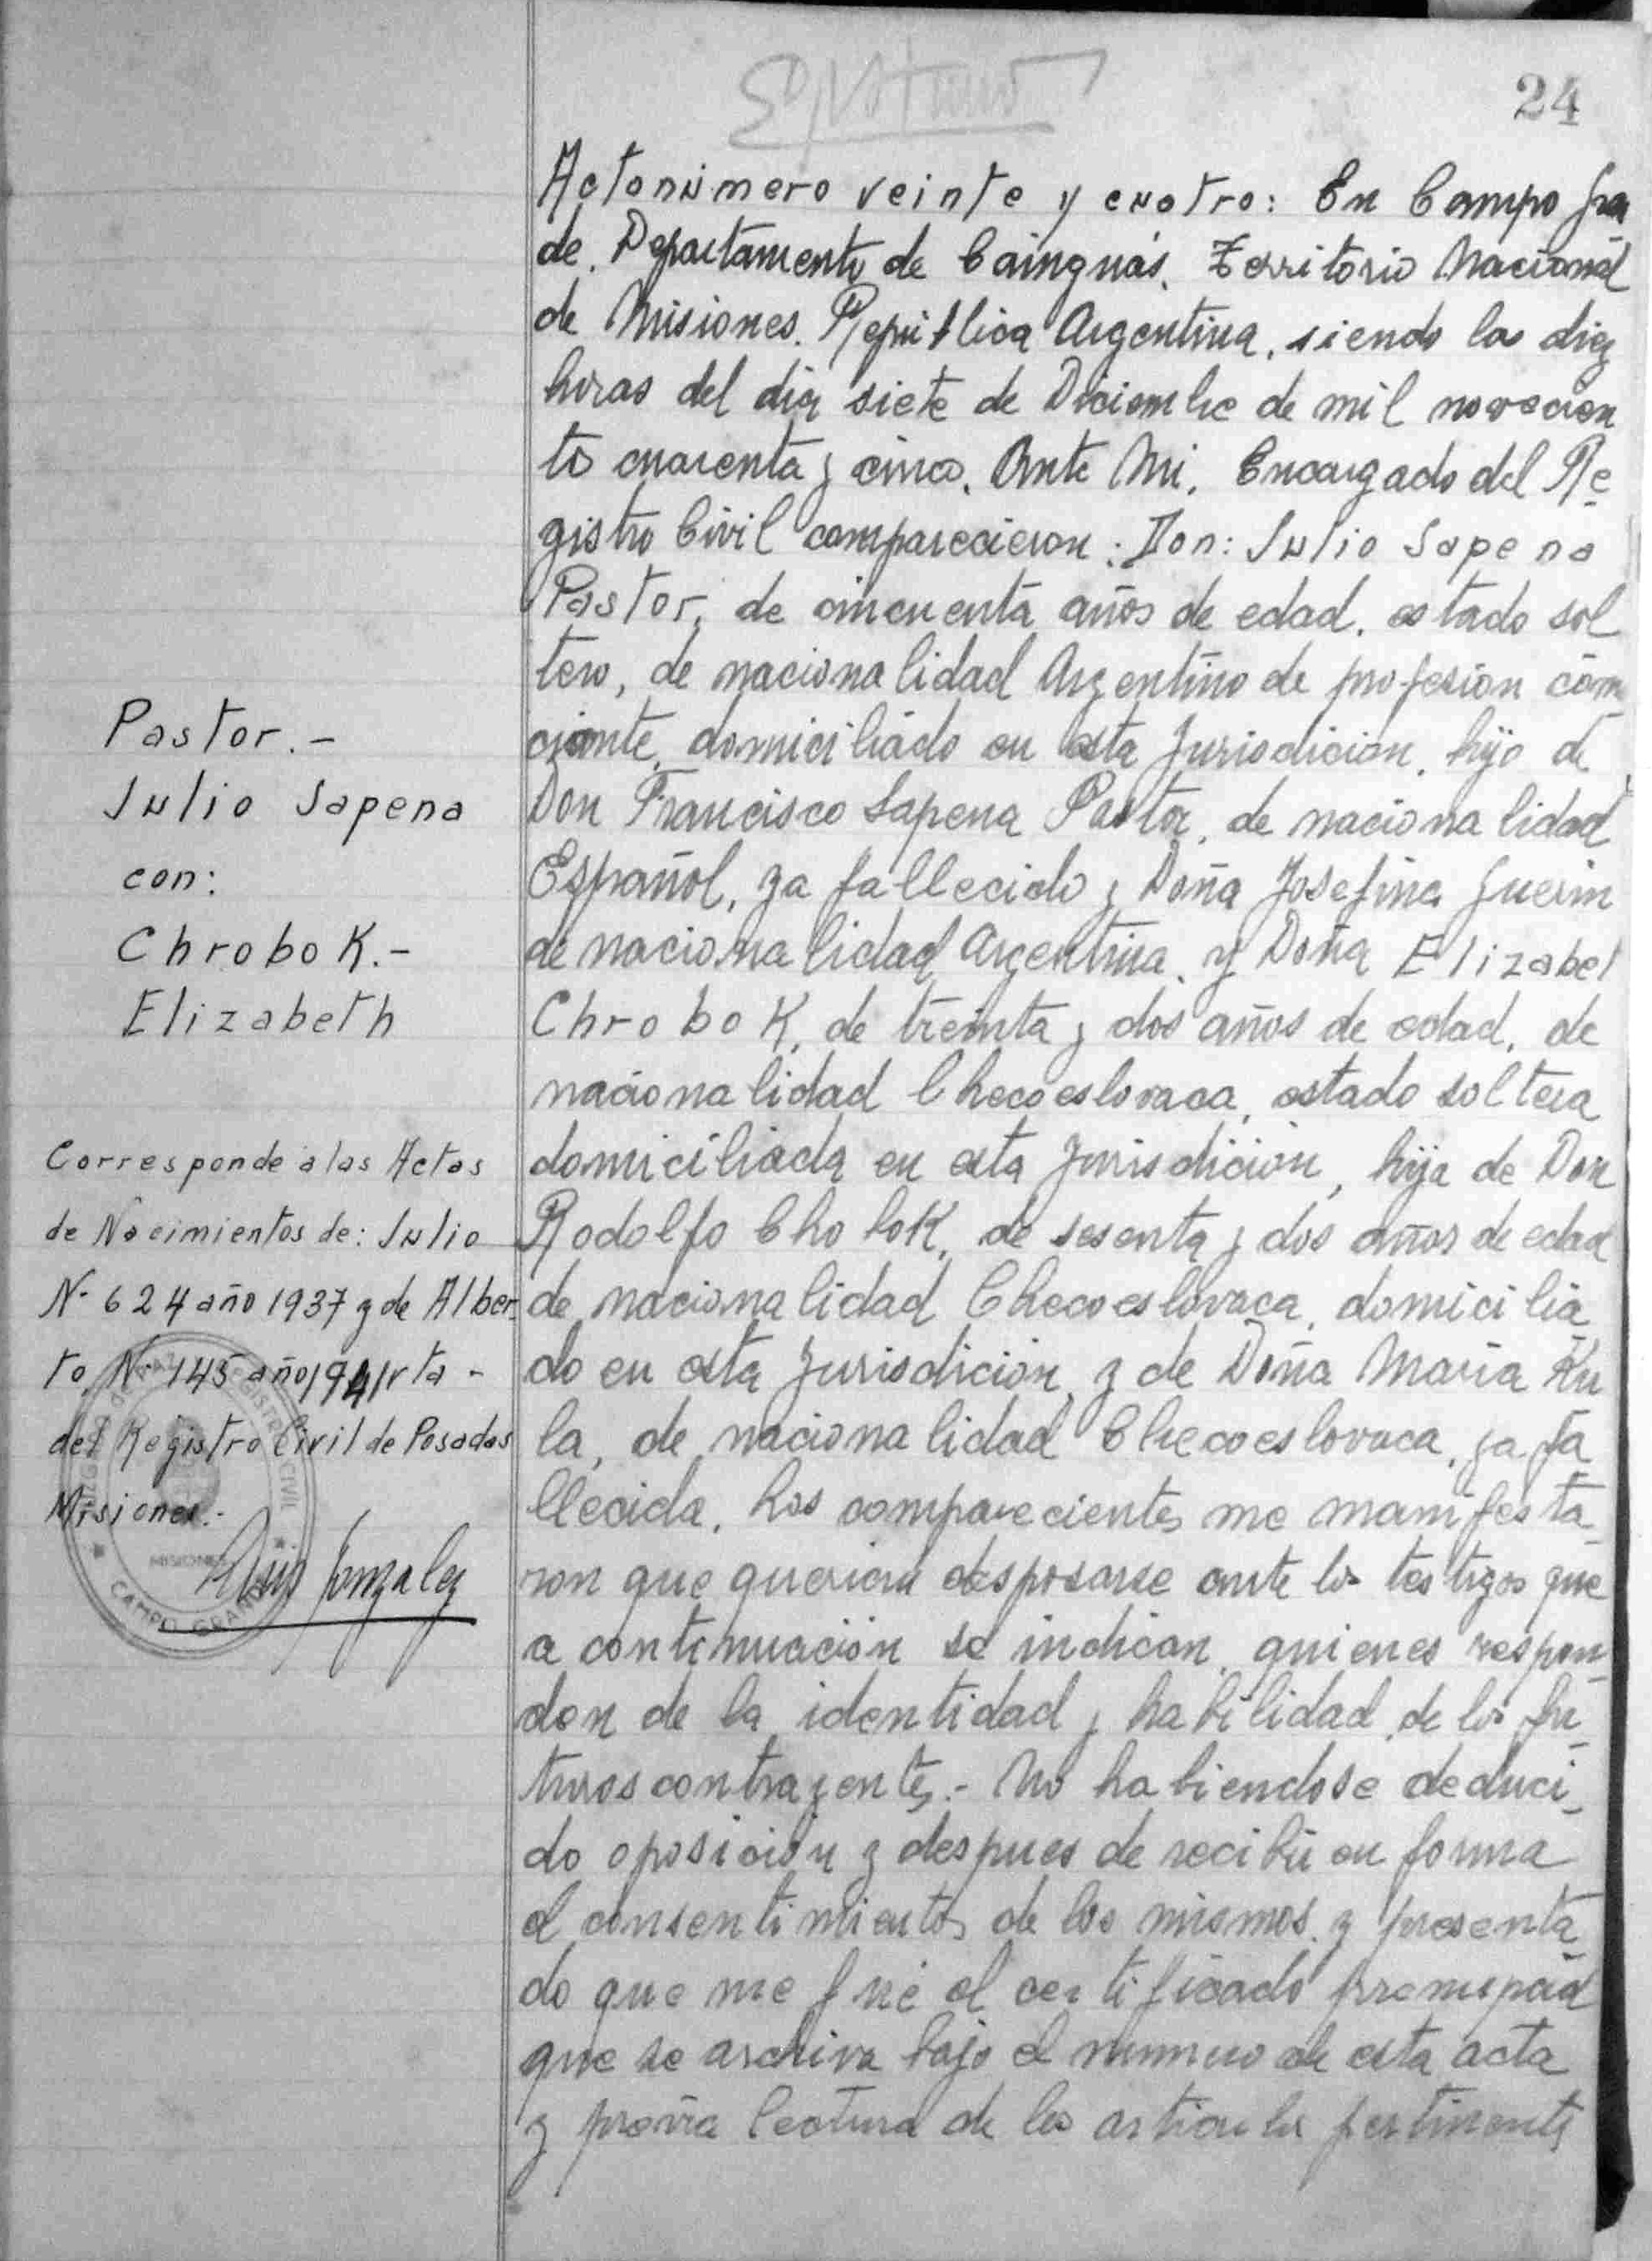 24
Acto número veinte y cuatro: En Campo Gran
de. Departamento de Cainguás. Territorio Nacional
de Misiones. República Argentina, siendo las diez
horas del dia siete de Diciembre de mil novecien
to cuarenta y cinco. Ante Mi. Encargado del Re
gistro Civil comparecieron: Don: Julio Sapena
Pastor, de cincuenta años de edad, estado sol
tero, de nacionalidad Argentino de profesion com
domiciliado en esta Jurisdicion, hijo de
Don Francisco Sapena Pastor, de nacionalidad
Español, ya fallecido y Doña Josefina Guerin
de nacionalidad Argentina, y Doña Elizabet
Chrobok, de treinta y dos años de edad, de
nacionalidad Checoeslovaca, estado soltera
domiciliada en esta Jurisdicion, hija de Don
Rodolfo Chobok, de sesenta y dos años de edad
de nacionalidad Checoeslovaca, domicilia
do en esta Jurisdicion, y de Doña Maria Ku
la, de nacionalidad Checoeslovaca, ya fa
llecida. Los comparecientes me manifesta
ron que querian desposarse ante los testigos que
a continuación se indican, quienes respon
den de la identidad y habilidad de los fu
turos contrayentes.- No habiendose deduci
do oposición y despues de recibir en forma
el consentimiento de los mismos, y presenta
do que me fué el certificado prenupcial
que se archiva bajo el numero de esta acta
y previa lectura de los articulos pertinentes
Pastor.-
Julio Sapena
con:
Chrobok.-
Elizabeth
Corresponde a las Actas
de Nacimientos de: Julio
N- 624 año 1937 y de Alber
to N- 145 año 1941 vta -
del Registro Civil de Posadas
Misiones.-
Gonzalez
REGISTRO CIVIL
MISIONES
CAMPO GRANDE